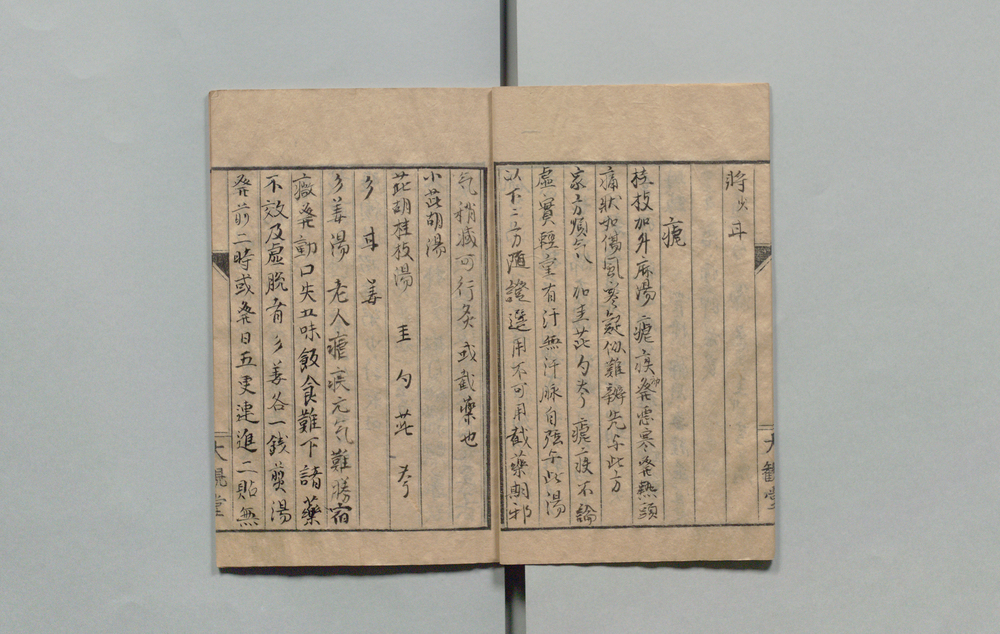 將少耳
瘧
桂枝加外麻湯 瘧疾發悪寒發熱頭
痛狀如傷風寒疑似難辨先与此方
家方順气 加圭茈勺 瘧疾不論
虛實輕重有汗無汗脉自弦与此湯
以下二方隨證選用不可用截藥期邪
气稍减可行灸或截藥也
小茈胡湯
茈胡桂枝湯 圭 勺 茈
姜
姜湯 老人瘧疾元气難勝宿
癥發動口失五味飯食難下諸藥
不效及虛脫者 姜各一錢煎湯
發前二時或發日五更連進二貼無
大觀堂
大觀堂